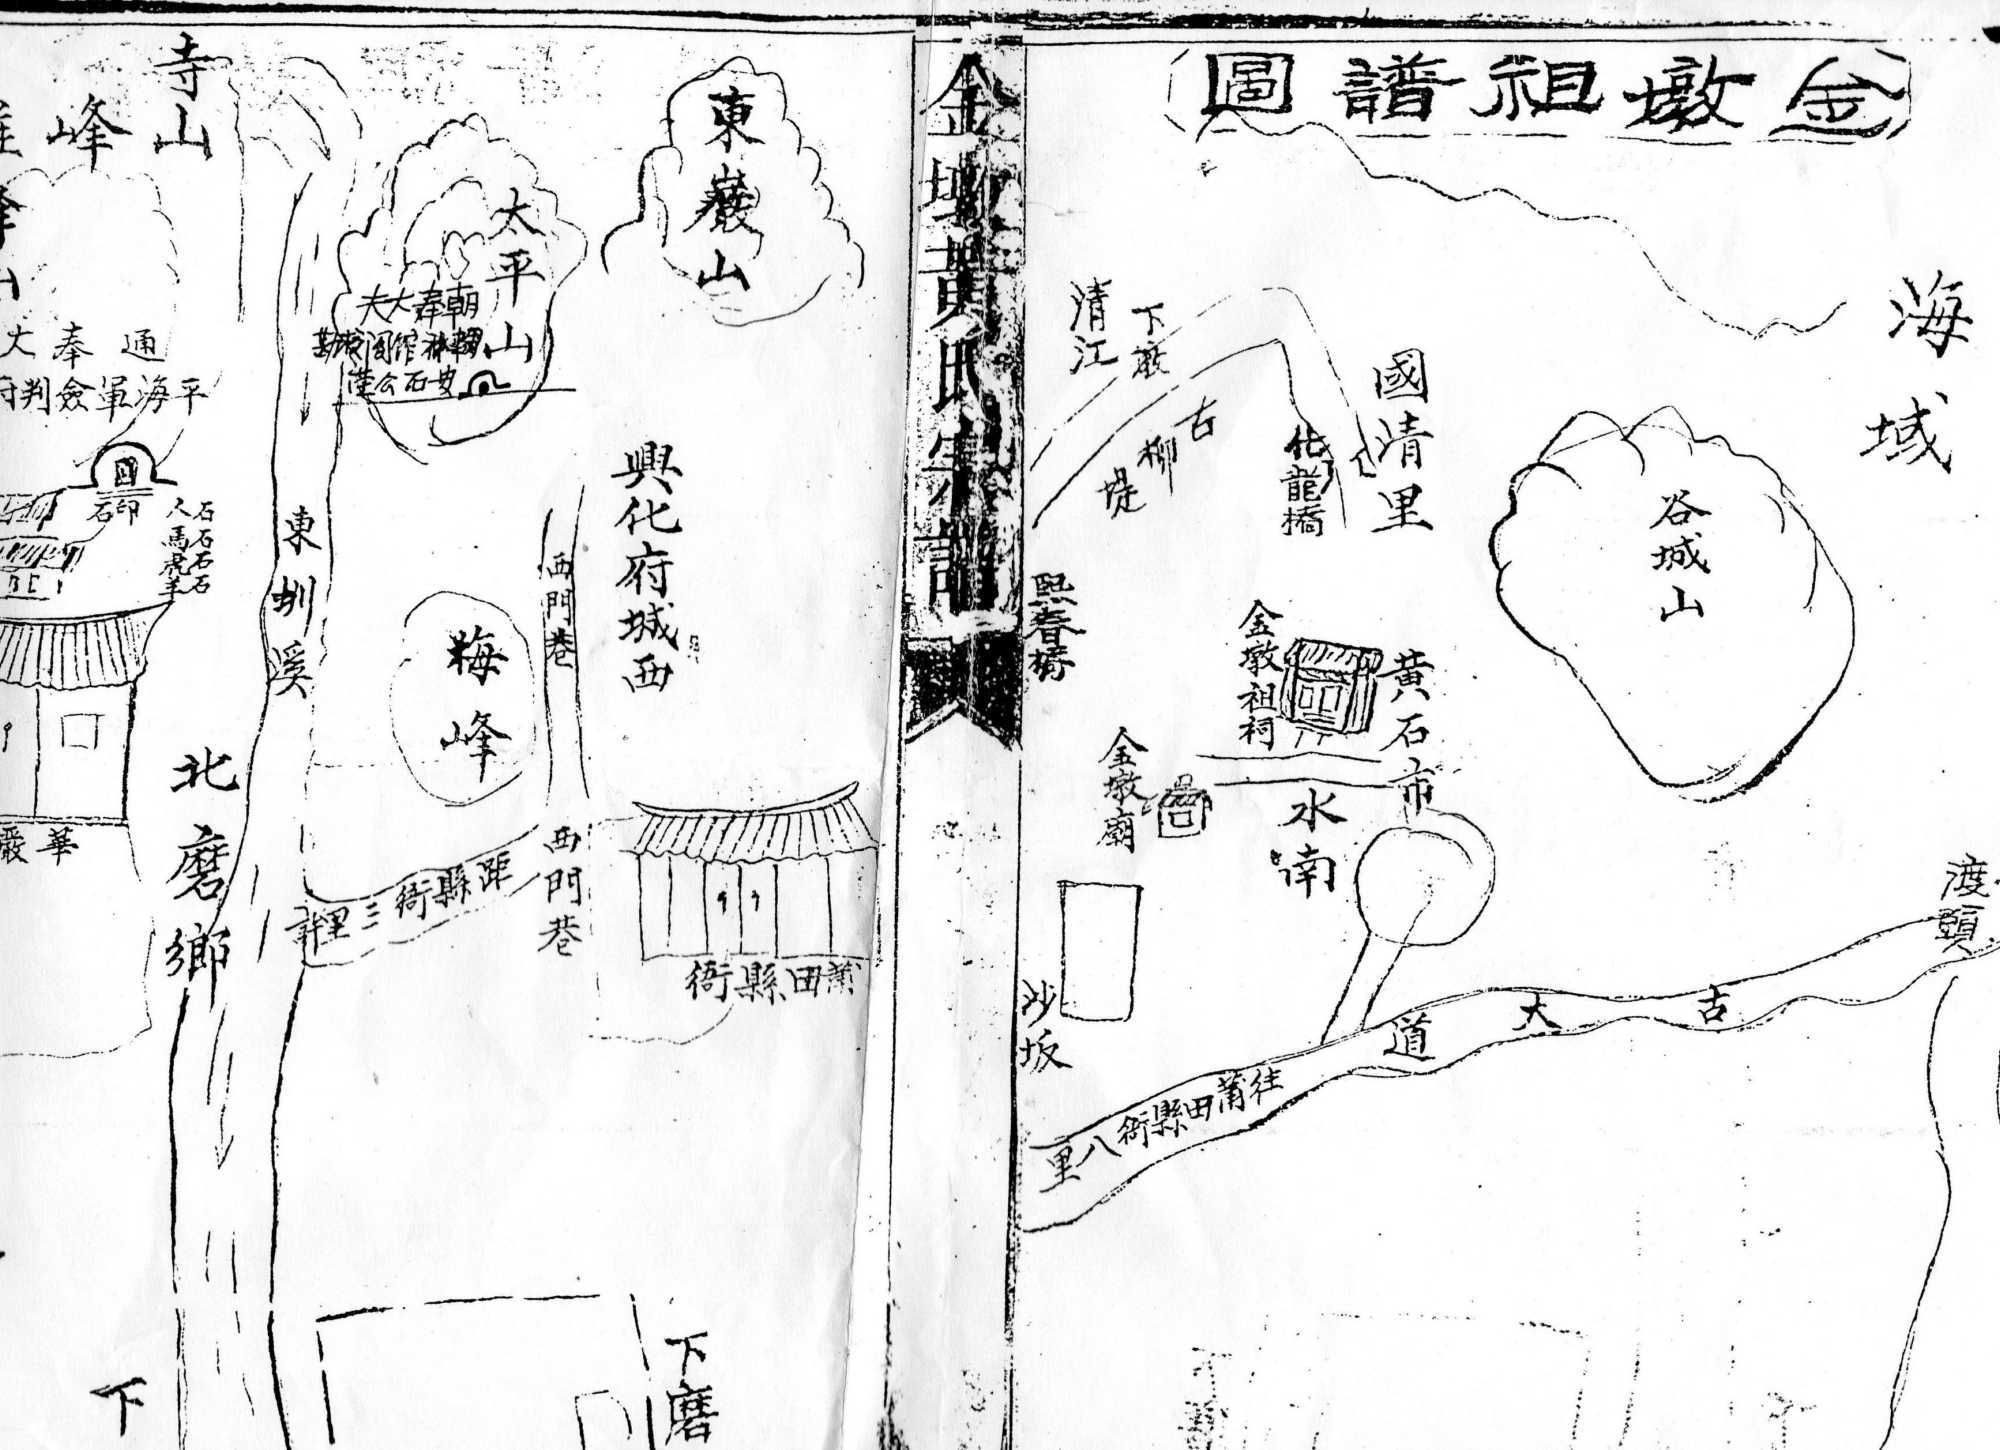 金墩祖譜圖
海域
谷城山
國清里
下墩
清江
古柳堤
化龍橋
熙春橋
金墩祖祠
黃石市
水南
金墩廟
沙坂
渡頭
古大道
往莆田縣衙八里
金墩黃氏宗譜
東巖山
太平山
朝奉大夫
安石公塋
興化府城西
西門巷
梅峰
西門巷
莆田縣衙
距縣衙三里許
東圳溪
北磨鄉
下磨
寺山
峰
通奉
平海軍僉判
印石
石人
石馬
石虎
石羊
華嚴
下